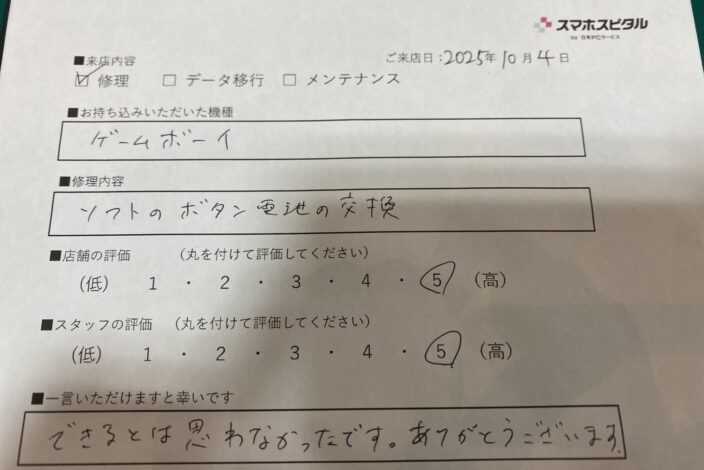 スマホスピタル
by 日本PCサービス
■来店内容
ご来店日：2025年10月4日
☑ 修理 □ データ移行 □ メンテナンス
■お持ち込みいただいた機種
ゲームボーイ
■修理内容
ソフトのボタン電池の交換
■店舗の評価 （丸を付けて評価してください）
(低) 1 ・ 2 ・ 3 ・ 4 ・ 5 (高)
■スタッフの評価 （丸を付けて評価してください）
(低) 1 ・ 2 ・ 3 ・ 4 ・ 5 (高)
■一言いただけますと幸いです
できるとは思わなかったです。ありがとうございます。